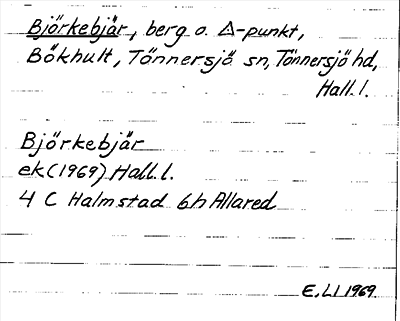 Björkebjär, berg o. △-punkt,
Bökhult, Tönnersjö sn, Tönnersjö hd,
Hall. l.
Björkebjär
ek (1969) Hall. l.
4 C Halmstad 6h Allared
E. LI 1969